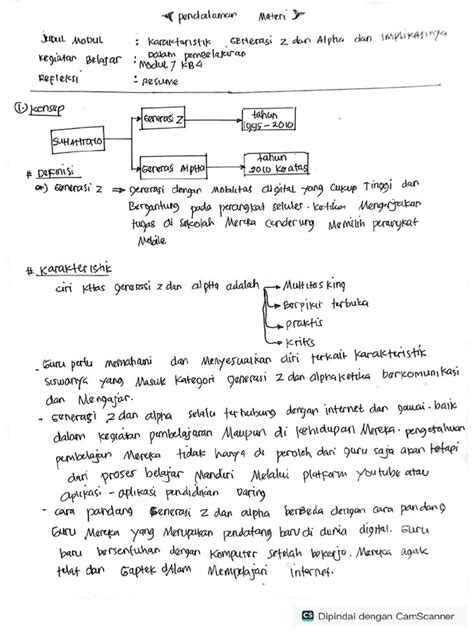 Pendalaman Materi
Judul Modul : Karakteristik Generasi Z dan Alpha dan Implikasinya
Dalam pembelajaran
Kegiatan Belajar : Modul 7 KB4
Refleksi : Resume
1. Konsep
Generasi Z
tahun
1995-2010
Suhartono
Generasi Alpha
tahun
2010 Keatas
# Definisi
a) Generasi Z ⇒ generasi dengan Mobilitas digital yang cukup Tinggi dan
Bergantung pada perangkat seluler. Ketika Mengerjakan
tugas di sekolah Mereka cenderung Memilih perangkat
Mobile
# Karakteristik
ciri khas generasi z dan alpha adalah → Multitasking
→ Berpikir terbuka
→ praktis
→ kritis
- Guru perlu memahami dan Menyesuaikan diri terkait karakteristik
siswanya yang Masuk kategori generasi Z dan alpha ketika berkomunikasi
dan Mengajar.
- Generasi Z dan alpha selalu terhubung dengan internet dan gawai. baik
dalam kegiatan pembelajaran Maupun di kehidupan Mereka. pengetahuan
pembelajan Mereka tidak hanya di peroleh dari guru saja akan tetapi
dari proses belajar Mandiri Melalui platform youtube atau
aplikasi-aplikasi pendidikan Daring
- cara pandang Generasi Z dan alpha berbeda dengan cara pandang
Guru Mereka yang Merupakan pendatang baru di dunia digital. Guru
baru bersentuhan dengan komputer setelah bekerja. Mereka agak
telat dan Gaptek dalam Mempelajari internet.
CS Dipindai dengan CamScanner